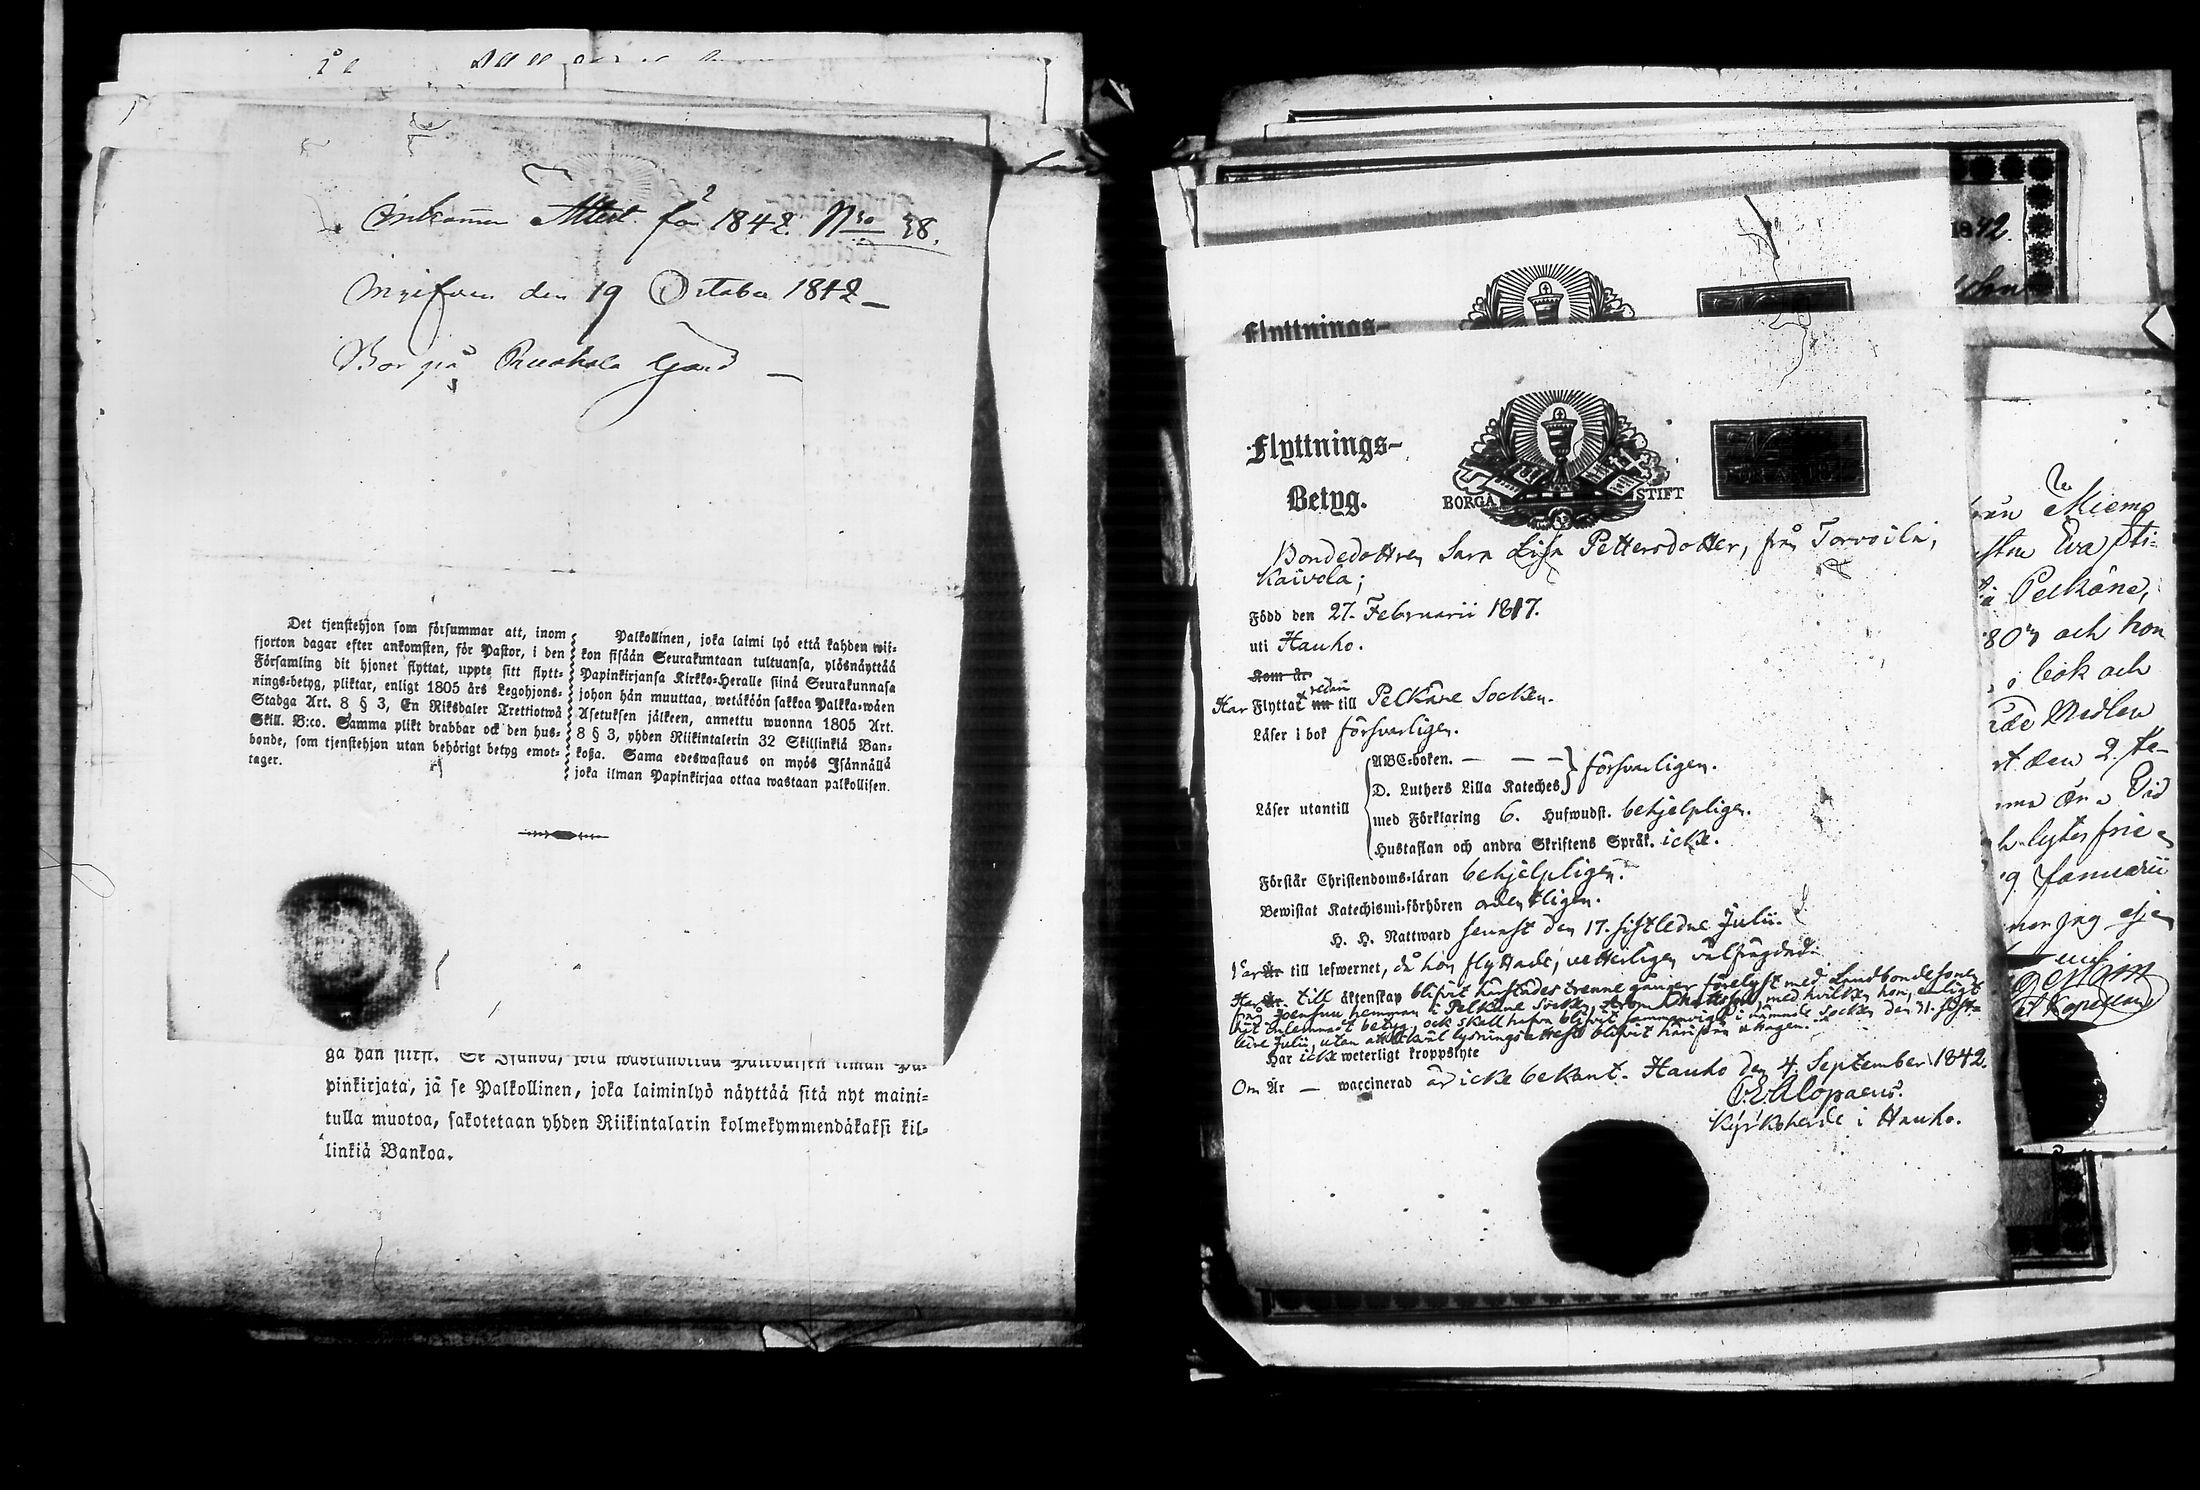 Inkommen Attest för 1842. Nro 38.
Ingifven den 19 October 1842
Bor på Ruokola gård
Det tjenstehjon som försummar att, inom
fjorton dagar efter ankomsten, för Pastor, i den
Församling dit hjonet flyttat, uppte sitt flytt-
nings-betyg, pliktar, enligt 1805 års Legohjons-
Stadga Art. 8 § 3, En Riksdaler Trettiotwå
Skill. B:co. Samma plikt drabbar ock den hus-
bonde, som tjenstehjon utan behörigt betyg emot-
tager.
Palkollinen, joka laimi lyö että kahden wii-
kon sisään Seurakuntaan tultuansa, ylösnäyttää
Papinkirjansa Kirkko-Heralle siinä Seurakunnasa
johon hän muuttaa, wetäköön sakkoa Palkka-wäen
Asetuksen jälkeen, annettu wuonna 1805 Art.
8 § 3, yhden Riikintalerin 32 Skillinkiä Ban-
kosa. Sama edeswastaus on myös Isännällä
joka ilman Papinkirjaa ottaa wastaan palkollisen.
pinkirjata, jä se Palkollinen, joka laiminlyö näyttää sitä nyt maini-
tulla muotoa, sakotetaan yhden Riikintalarin kolmekymmendäkaksi kil-
linkiä Bankoa.
1842.
Flyttnings-
Flyttnings-
Betyg.
BORGÅ STIFT
Bondedottren Sara Lisa Pettersdotter, från Torvoila,
Kaivola;
Född den 27. Februarii 1817.
uti Hauho.
Kom år
Har Flyttat redan nu till Pelkäne Socken.
Läser i bok försvarligen.
ABC-boken. — — —
D. Luthers Lilla Kateches, försvarligen.
Läser utantill
med Förklaring 6. Hufwudst. behjelpligen.
Hustaflan och andra Skriftens Språk. icke.
Förstår Christendoms-läran behjelpligen.
Bewistat Katechismi-förhören ordentligen.
H. H. Nattward senast den 17. sistledne Julii.
Var är till lefwernet, då hon flyttade, vetterligen välfrägdad.
Har är till äktenskap blifvit härstädes trenne gånger förelyst med Landbondesonen
från Joensuu hemman i Pelkäne Socken, Aron Mattsson, med hvilken hon, enligt
hit inlemnadt betyg, ock skall hafva blifvit sammanvigd i nämnde Socken den 31. sist-
ledne Julii, utan att lysningsattest blifvit härifrån uttagen.
Har icke weterligt kroppslyte
Om Är — waccinerad är icke bekant. Hauho den 4. September 1842.
Alopaeus.
Kyrkoherde i Hauho.
Eva
i Pelkäne,
och hon
i bok och
den 2.
Januarii